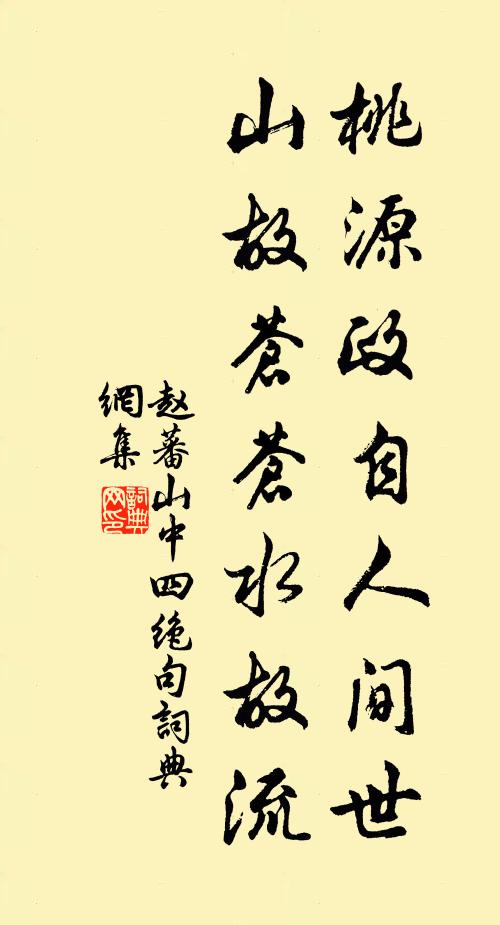 桃源政自人间世
山故苍苍水故流
赵蕃山中四绝句词典
網集
詞典
网印